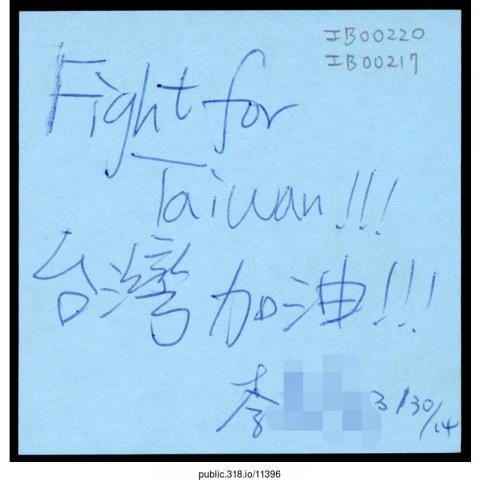 IB00220
IB00217
Fight for
Taiwan!!!
台灣加油!!!
李 3/30/14
public.318.io/11396